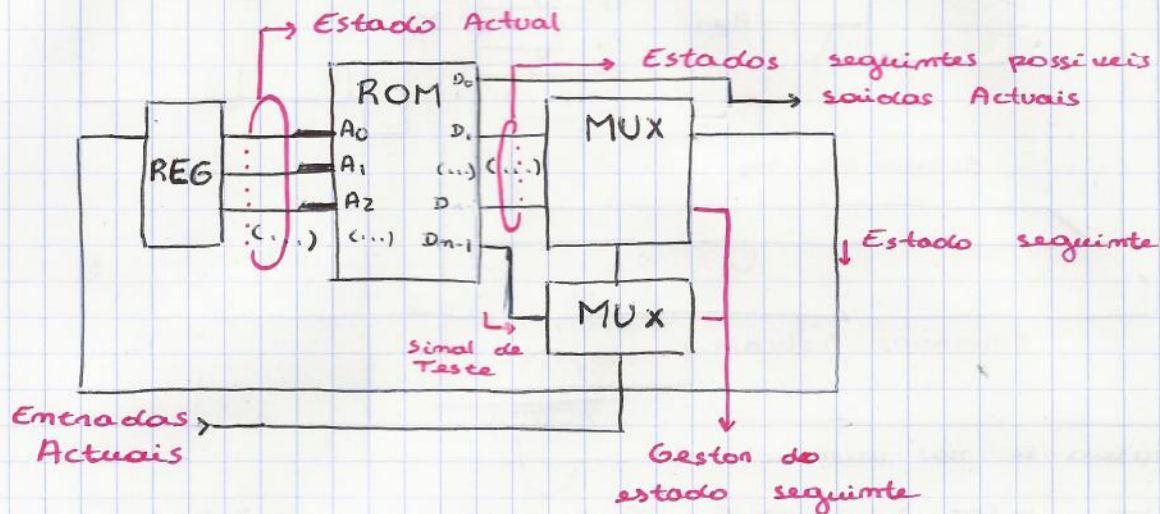 Estado Actual
Estados seguintes possíveis
saídas Actuais
ROM
D0
MUX
REG
A0
D1
A1
(...)
(...)
A2
D
(...)
(...)
Dn-1
Estado seguinte
MUX
Sinal de
Teste
Entradas
Actuais
Gestor do
estado seguinte